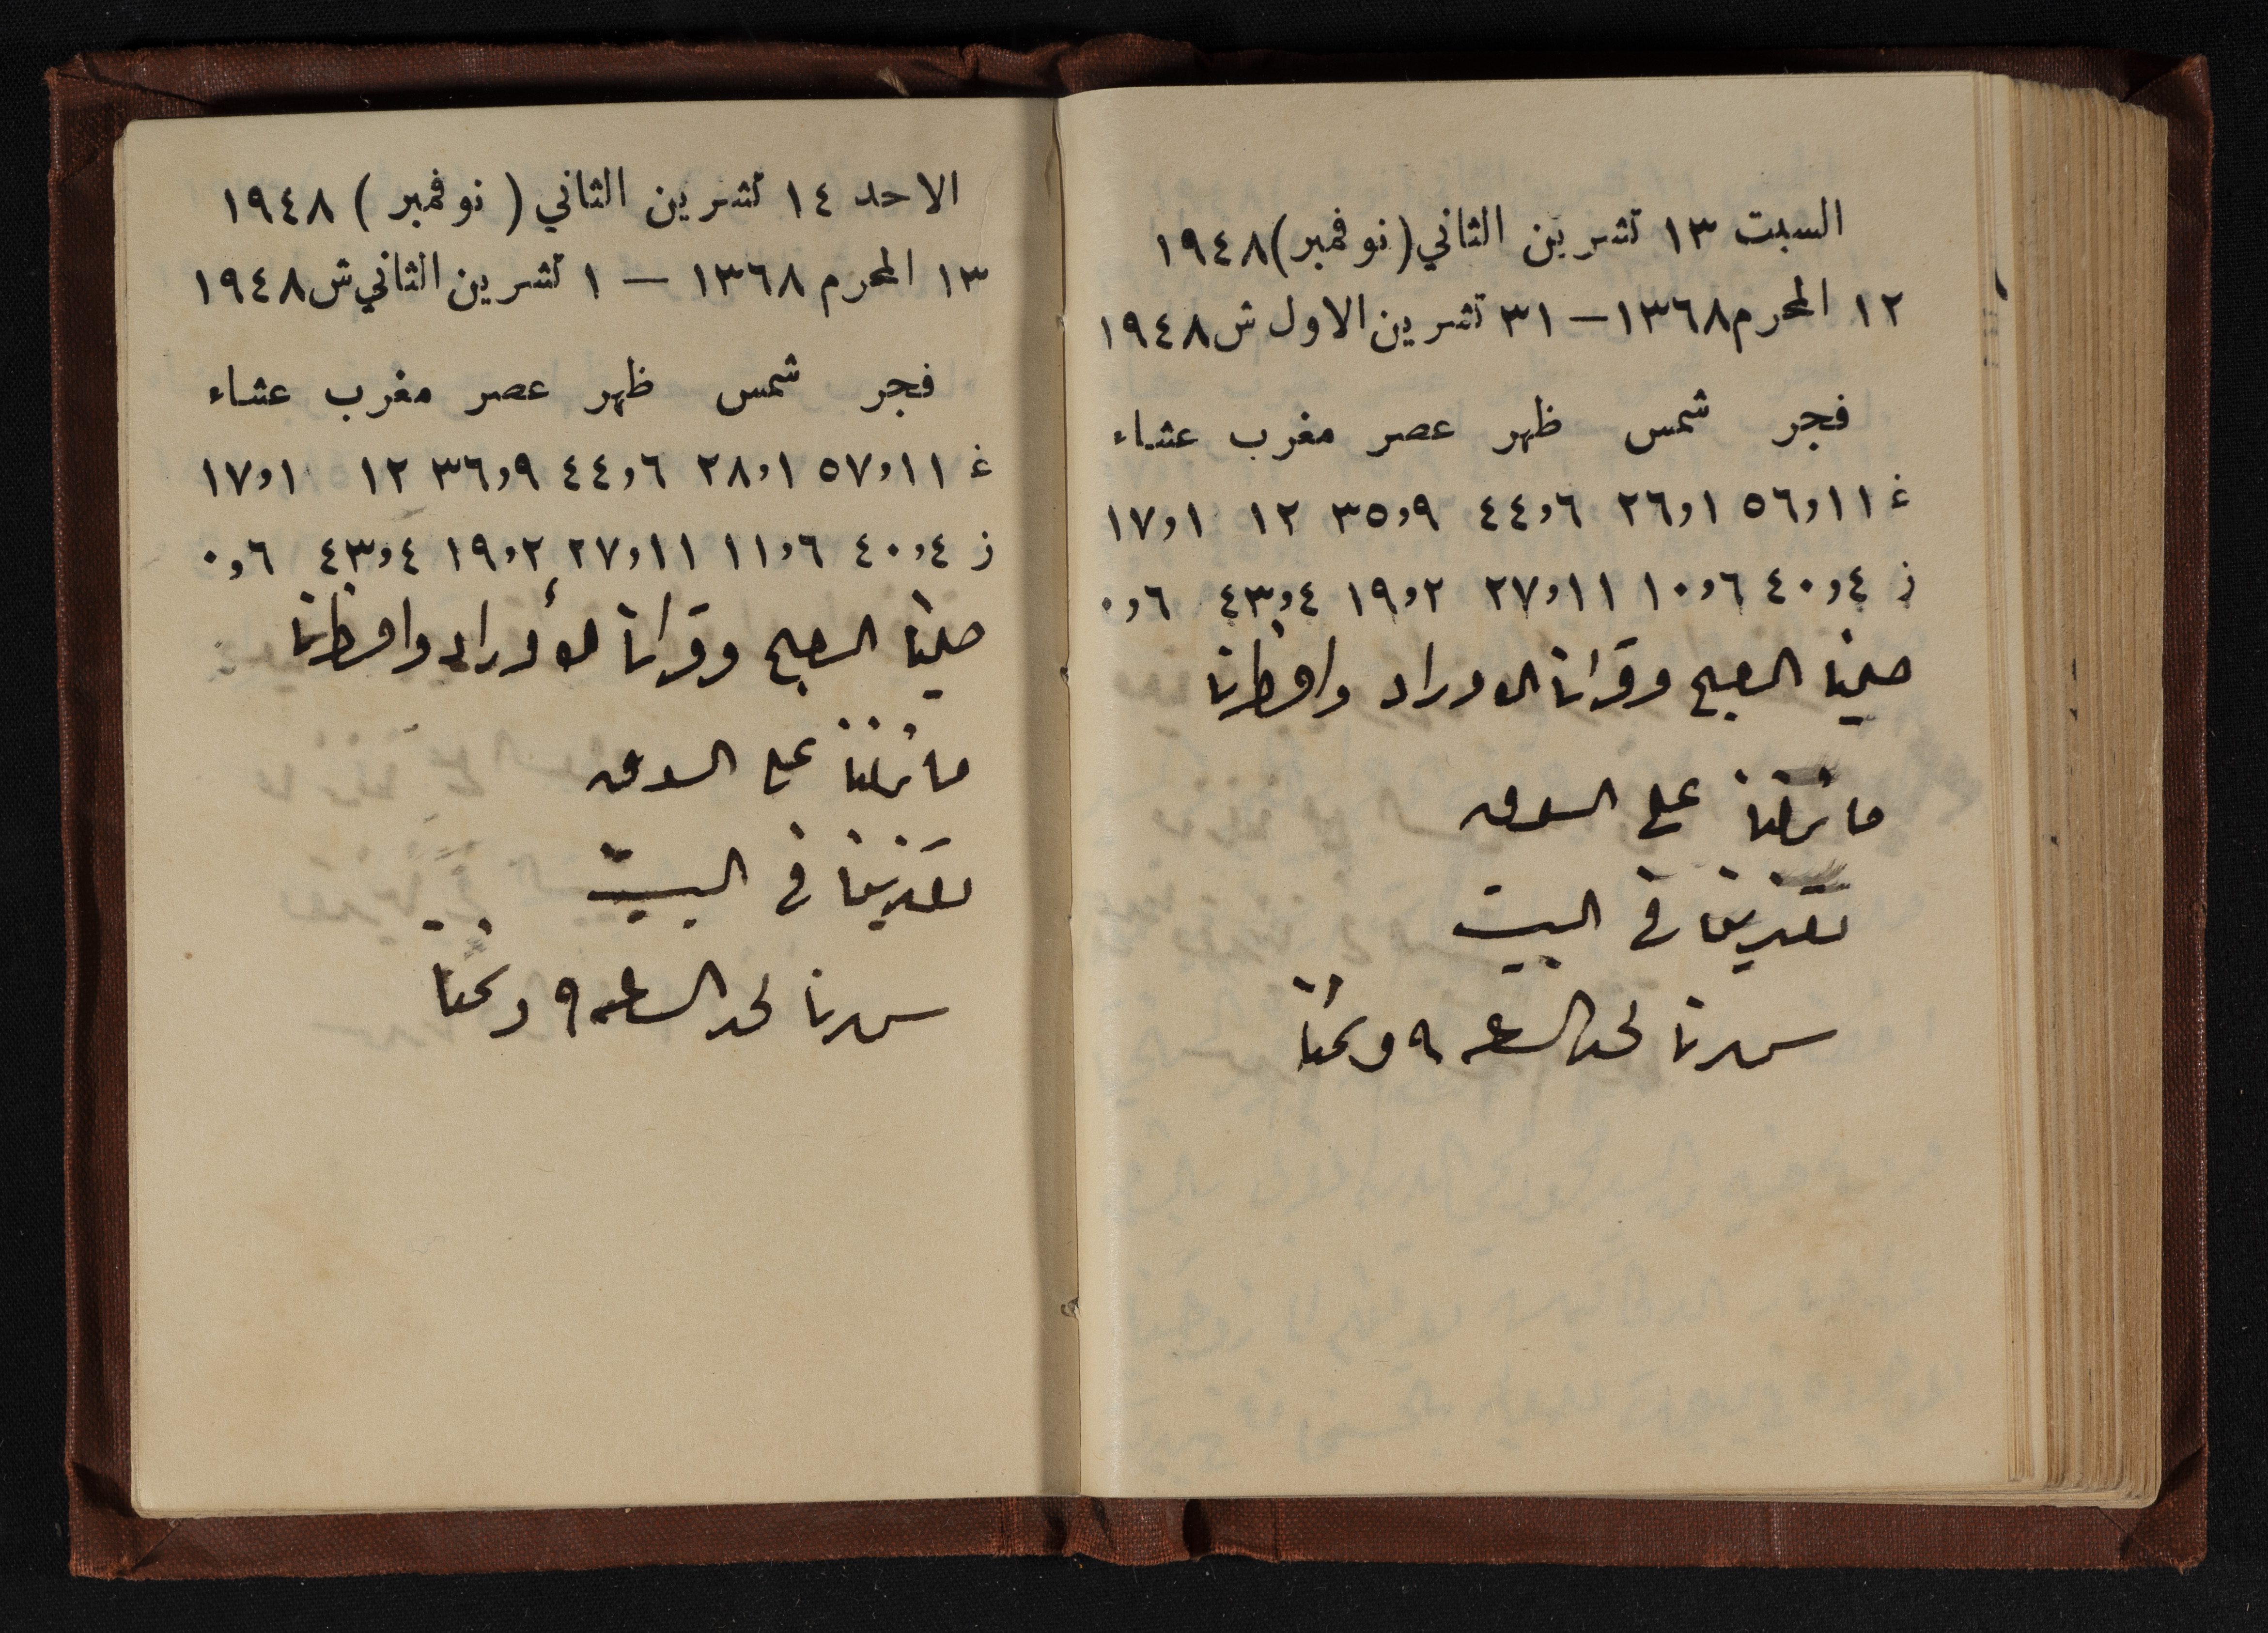 السبت ١٣ تشرين الثاني (نوفمبر) ١٩٤٨
١٢ المحرم ١٣٦٨ – ٣١ تشرين الاول ش ١٩٤٨
فجر شمس ظهر عصر مغرب عشاء
غ ١١,٥٦ ١,٢٦ ٦,٤٤ ٩,٣٥ ١٢ ١,١٧
ز ٤,٤٠ ٦,١٠ ١١,٢٧ ٢,١٩ ٤,٤٣ ٦,٠
صلينا الصبح وقرانا الاوراد وافطرنا
ما نزلنا على السوق
تغدينا في البيت
سهرنا لحد الساعه ٩ ونمنا
الاحد ١٤ تشرين الثاني (نوفمبر) ١٩٤٨
١٣ المحرم ١٣٦٨ – ١ تشرين الثاني ش ١٩٤٨
فجر شمس ظهر عصر مغرب عشاء
غ ١١,٥٧ ١,٢٨ ٦,٤٤ ٩,٣٦ ١٢ ١,١٧
ز ٤,٤٠ ٦,١١ ١١,٢٧ ٢,١٩ ٤,٤٣ ٦,٠
صلينا الصبح وقرانا الأوراد وافطرنا
ما نزلنا على السوق
تغدينا في البيت
سهرنا لحد الساعه ٩ ونمنا